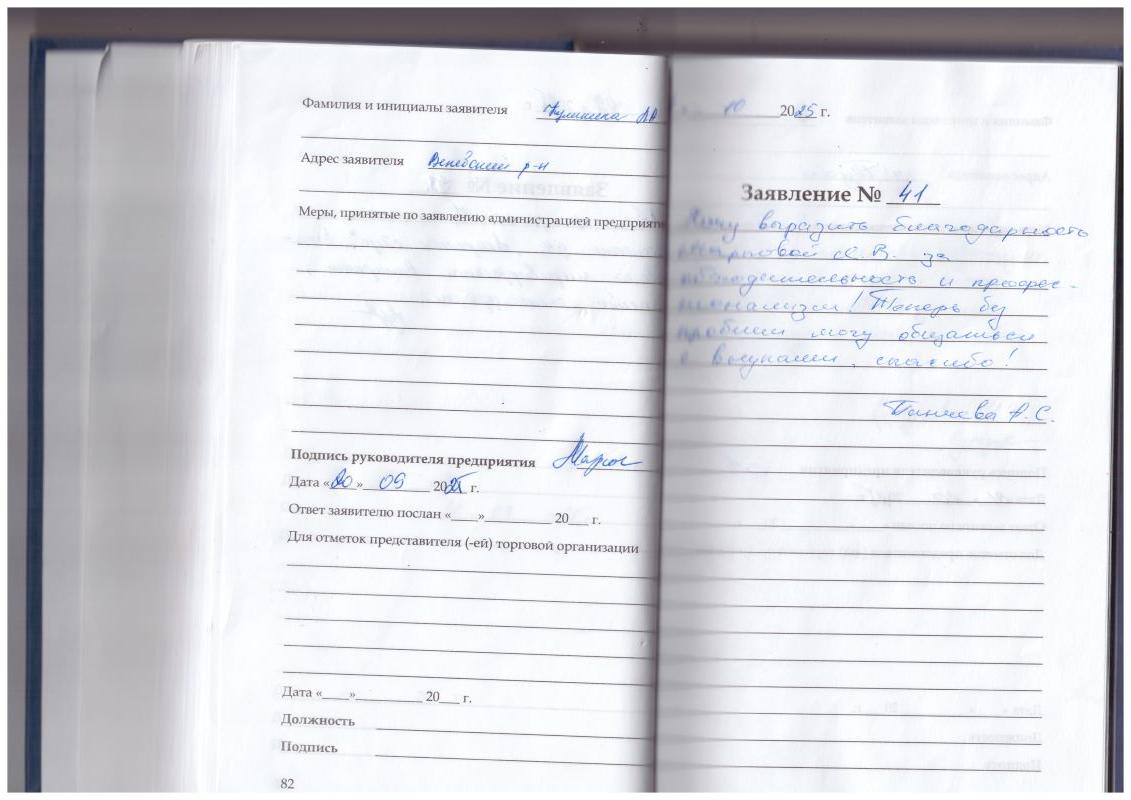 Фамилия и инициалы заявителя
Адрес заявителя Веневский р-н
Меры, принятые по заявлению администрацией предприяти
Подпись руководителя предприятия
Дата «20» 09 2025 г.
Ответ заявителю послан «____»__________ 20___ г.
Для отметок представителя (-ей) торговой организации
Дата «____»__________ 20___ г.
Должность
Подпись
82
10 2025 г.
Заявление № 41
Хочу выразить благодарность
М. В. за
и профес-
сионализм! Теперь без
проблем могу общаться
с внуками, спасибо!
А.С.